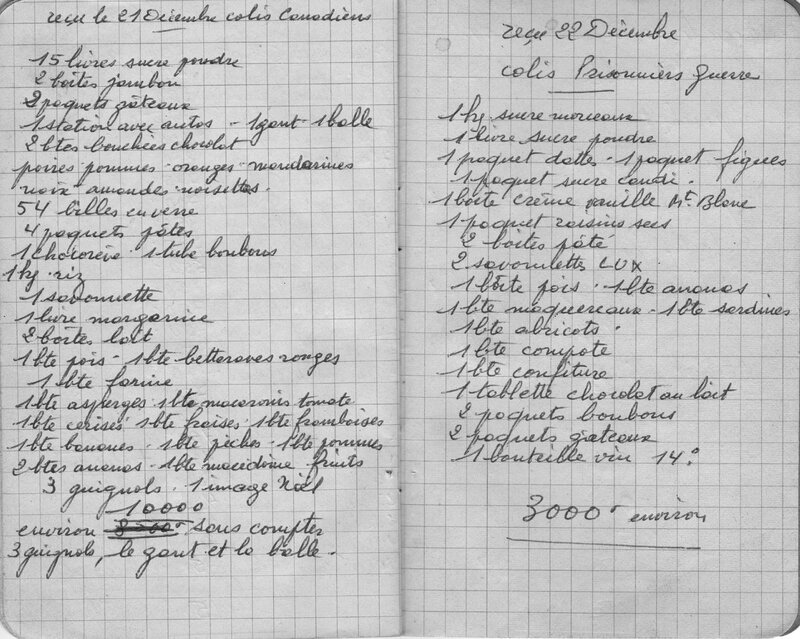 reçu le 21 Décembre colis Canadiens
15 livres sucre poudre
2 boîtes jambon
2 paquets gâteaux
1 station avec autos - 1 gant - 1 balle
2 btes bouchées chocolat
poires pommes - oranges - mandarines
noix - amandes - noisettes.
54 billes en verre
4 paquets pâtes
1 chocorêve 1 tube bonbons
1 kg riz
1 savonnette
1 livre margarine
2 boîtes lait
1 bte pois - 1 bte betteraves rouges
1 bte farine
1 bte asperges 1 bte macaronis tomate
1 bte cerises 1 bte fraises 1 bte framboises
1 bte bananes - 1 bte pêches - 1 bte pommes
2 btes ananas - 1 bte macédoine fruits
3 guignols - 1 image Noël
10000
environ sans compter
3 guignols, le gant et la balle.
reçu 22 Décembre
colis Prisonniers Guerre
1 kg sucre morceaux
1 livre sucre poudre
1 paquet dattes - 1 paquet figues
1 paquet sucre candi.
1 boîte crème vanille Mt Blanc
1 paquet raisins secs
2 boîtes pâté
2 savonnettes LUX
1 bôite pois - 1 bte ananas
1 bte maquereaux - 1 bte sardines
1 bte abricots.
1 bte compote
1 bte confiture
1 tablette chocolat au lait
2 paquets bonbons
2 paquets gateaux
1 bouteille vin 14°
3000 environ